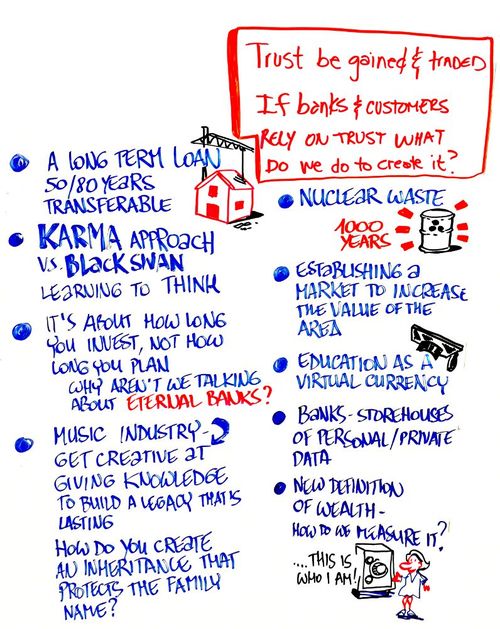 Trust be gained & traded
If banks & customers
rely on trust what
do we do to create it?
A long term loan
50/80 years
transferable
Karma approach
v.s. Black swan
learning to think
It's about how long
you invest, not how
long you plan
why aren't we talking
about eternal banks?
Music industry-
get creative at
giving knowledge
to build a legacy that is
lasting
How do you create
an inheritance that
protects the family
name?
Nuclear waste
1000
years
Establishing a
market to increase
the value of the
area
Education as a
virtual currency
Banks - storehouses
of personal/private
data
New definition
of wealth -
how do we measure it?
....This is
who I am!